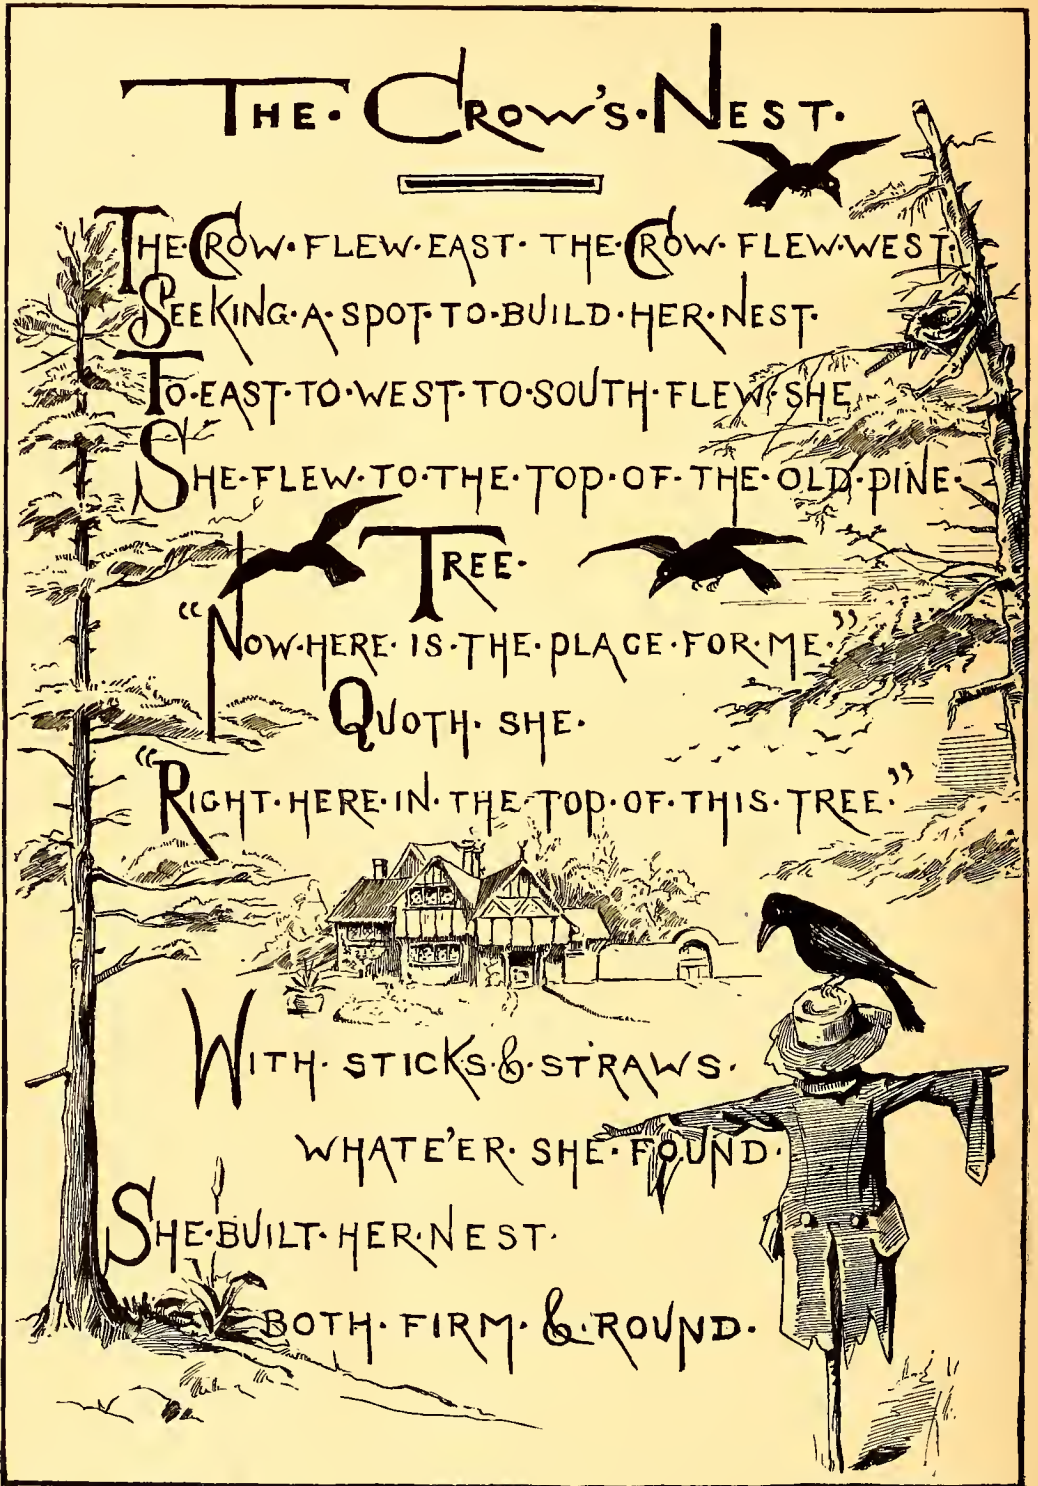 THE·CROW'S·NEST·
THE·CROW·FLEW·EAST·THE·CROW·FLEW·WEST·
SEEKING·A·SPOT·TO·BUILD·HER·NEST·
TO·EAST·TO·WEST·TO·SOUTH·FLEW·SHE
SHE·FLEW·TO·THE·TOP·OF·THE·OLD·PINE·
TREE·
"NOW·HERE·IS·THE·PLACE·FOR·ME·"
QUOTH·SHE·
"RIGHT·HERE·IN·THE·TOP·OF·THIS·TREE·"
WITH·STICKS·&·STRAWS·
WHATE'ER·SHE·FOUND·
SHE·BUILT·HER·NEST·
BOTH·FIRM·&·ROUND·